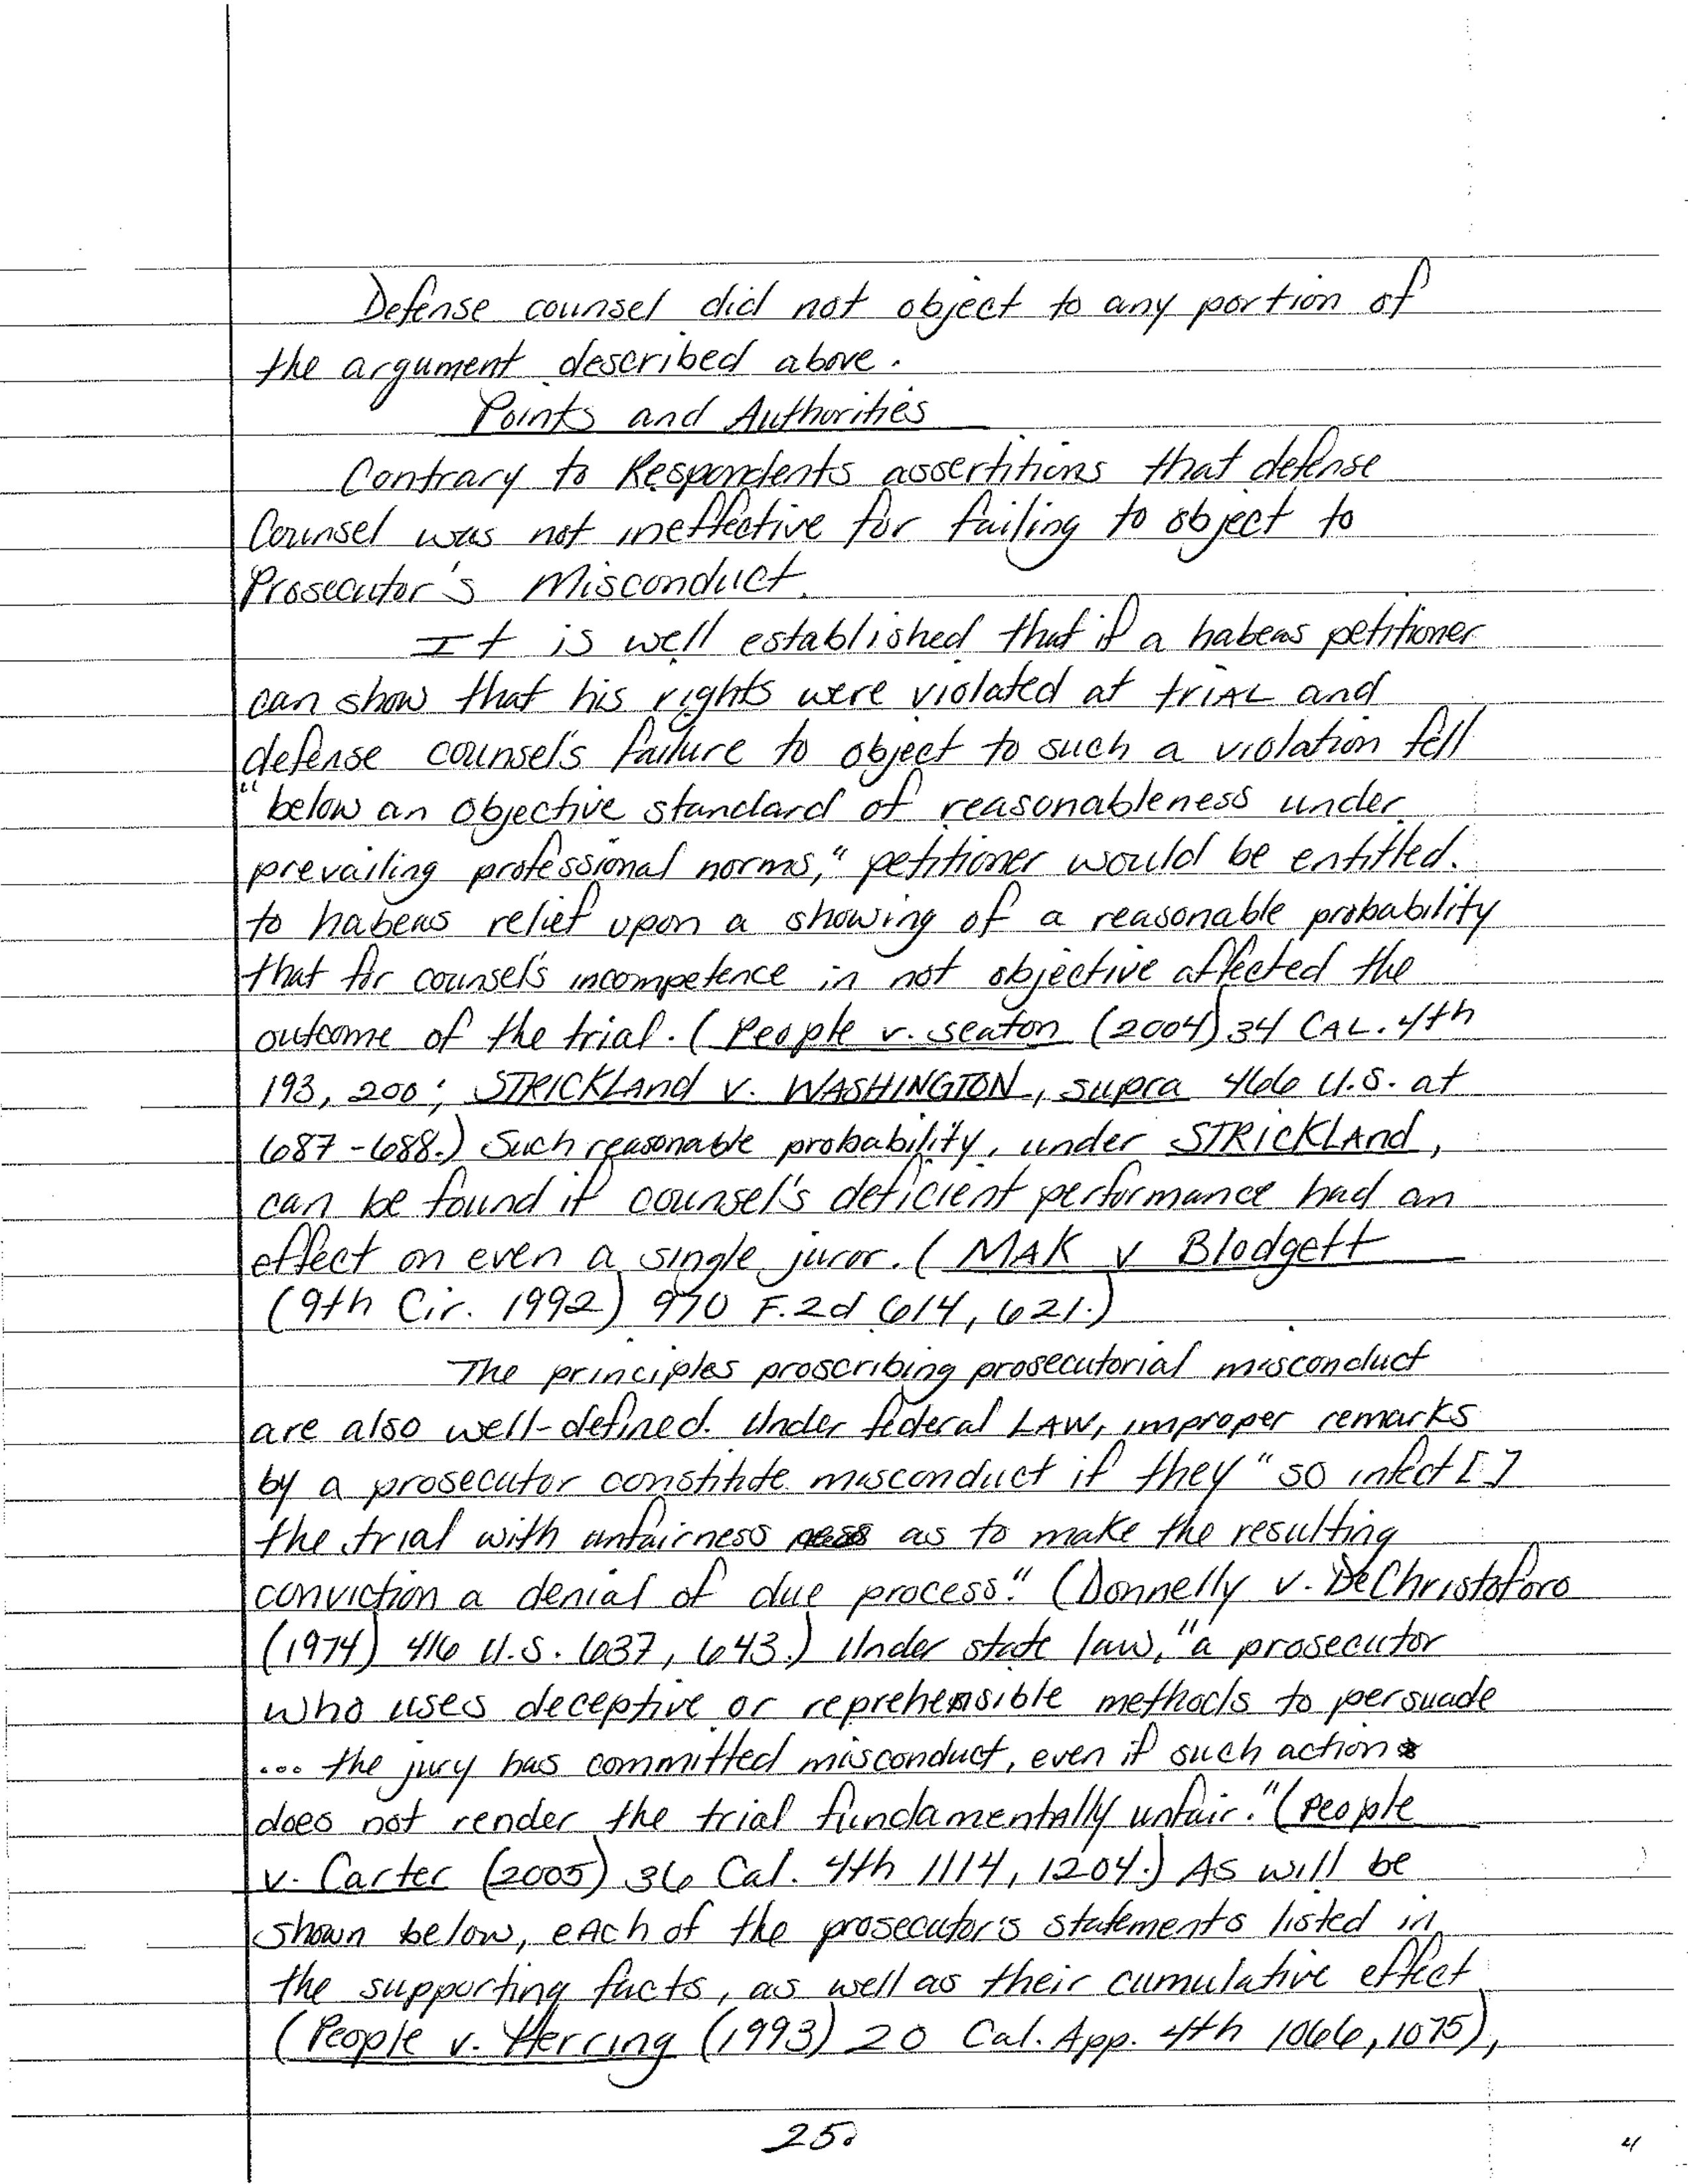 Defense counsel did not object to any portion of
the argument described above.
Points and Authorities
Contrary to Respondents assertitions that defense
Counsel was not ineffective for failing to object to
Prosecutor's Misconduct.
It is well established that if a habeas petitioner
can show that his rights were violated at trIAL and
defense counsel's failure to object to such a violation fell
"below an objective standard of reasonableness under
prevailing professional norms," petitioner would be entitled.
to habeas relief upon a showing of a reasonable probability
that for counsel's incompetence in not objective affected the
outcome of the trial. (People v. seaton (2004) 34 CAL. 4th
193, 200; STRICKLand v. WASHINGTON, supra 466 U.S. at
687-688.) Such reasonable probability, under STRICKLAnd,
can be found if counsel's deficient performance had an
effect on even a single juror. (MAK v Blodgett
(9th Cir. 1992) 970 F.2d 614, 621.)
The principles proscribing prosecutorial misconduct
are also well-defined. Under federal LAW, improper remarks
by a prosecutor constitute misconduct if they "so infect[]
the trial with unfairness as to make the resulting
conviction a denial of due process." (Donnelly v. DeChristoforo
(1974) 416 U.S. 637, 643.) Under state law, "a prosecutor
who uses deceptive or reprehensible methods to persuade
... the jury has committed misconduct, even if such action
does not render the trial fundamentally unfair." (People
v. Carter (2005) 36 Cal. 4th 1114, 1204.) As will be
shown below, eAch of the prosecutor's statements listed in
the supporting facts, as well as their cumulative effect
(People v. Herring (1993) 20 Cal. App. 4th 1066, 1075),
25.